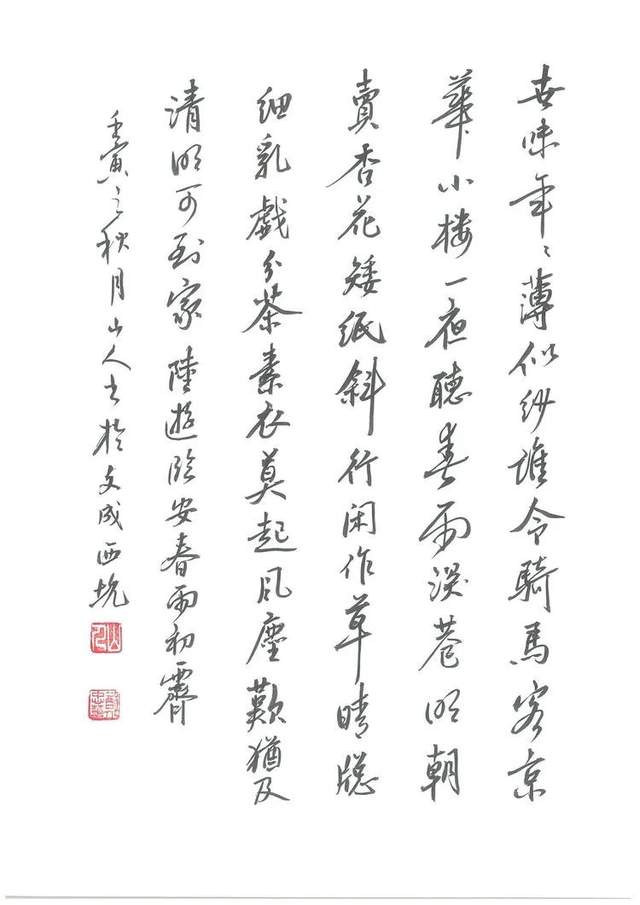 世味年〻薄似紗誰令騎馬客京
華小楼一夜聽春雨深巷明朝
賣杏花矮紙斜行闲作草晴牕
細乳戲分茶素衣莫起風塵歎猶及
清明可到家 陸遊臨安春雨初霽
壬寅之秋月山人书於文成西坑